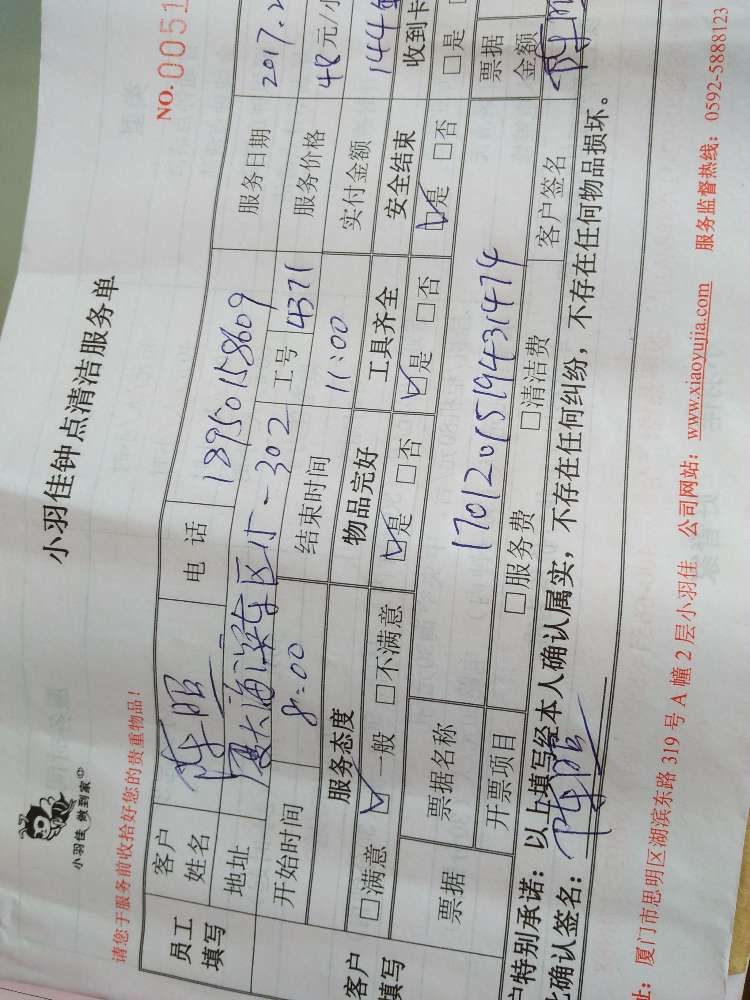 小羽佳 做到家
小羽佳钟点清洁服务单
请您于服务前收拾好您的贵重物品！
NO. 0051
员工填写
客户姓名 陈照 电话 13950158609 服务日期 2017.2
地址 厦大海滨东区15-302 工号 4371 服务价格 48元/小
开始时间 8:00 结束时间 11:00 实付金额 144
客户填写
服务态度 物品完好 工具齐全 安全结束 收到卡
□满意 ☑一般 □不满意 ☑是 □否 ☑是 □否 ☑是 □否 □是
票据 票据名称 1701201519431474 票据金额
开票项目 □服务费 □清洁费 客户签名 陈照
户特别承诺：以上填写经本人确认属实，不存在任何纠纷，不存在任何物品损坏。
确认签名：陈照
址：厦门市思明区湖滨东路 319 号 A 幢 2 层小羽佳 公司网站：www.xiaoyujia.com 服务监督热线：0592-5888123